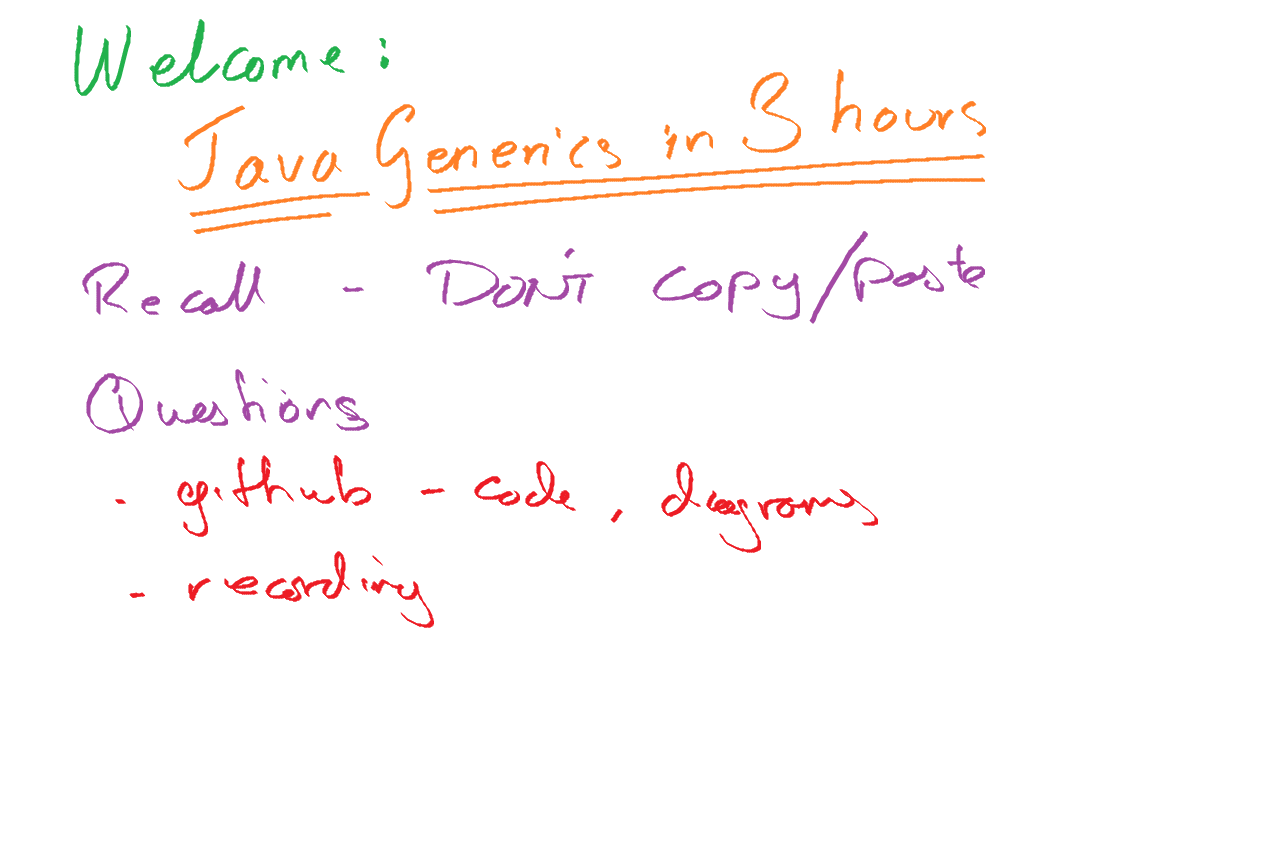 Welcome:
Java Generics in 3 hours
Recall - DON'T copy/paste
Questions
- github - code, diagrams
- recording